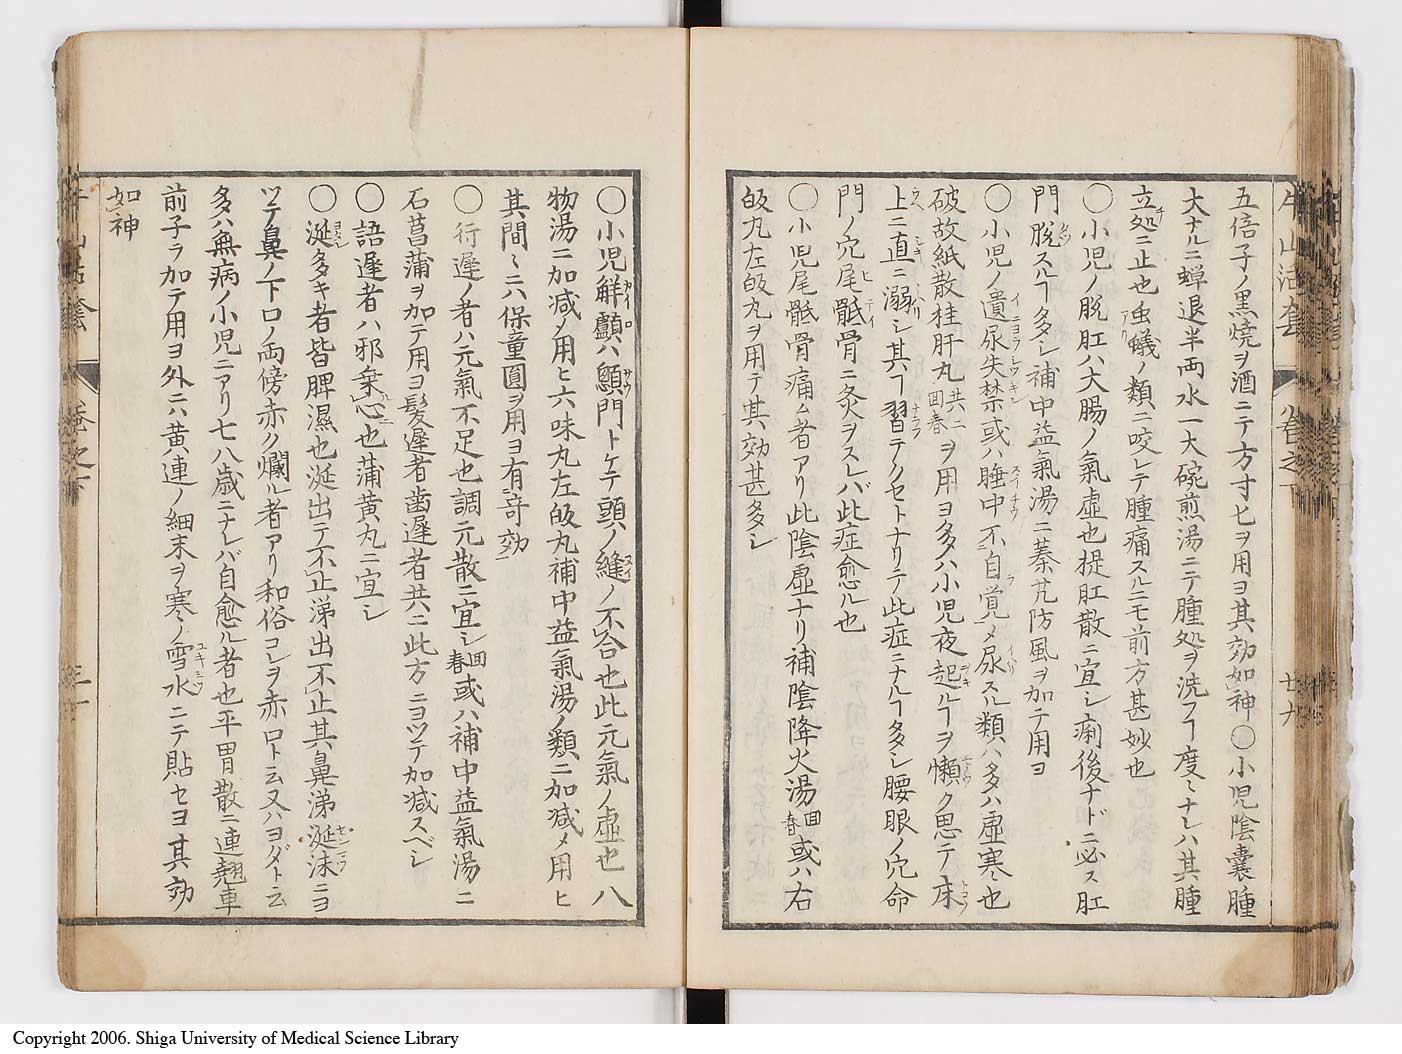 牛山活套 卷之下 廿九
五倍子ノ黒燒ヲ酒ニテ方寸匕ヲ用ヨ其効如神〇小児陰嚢腫
大ナルニ蝉退半両水一大碗煎湯ニテ腫処ヲ洗フヿ一度ミナレハ其腫
立処ニ止也虫蟻ノ類ニ咬レテ腫痛スルニモ前方甚妙也
〇小児ノ脱肛ハ大腸ノ氣虚也提肛散ニ宜シ痢後ナドニ必ス肛
門脱スルヿ多シ補中益氣湯ニ蓁艽防風ヲ加テ用ヨ
〇小児ノ遺尿失禁或ハ睡中不自覚メ尿スル類ハ多ハ虚寒也
破故紙散桂肝丸共ニ回春ヲ用ヨ多ハ小児夜起ルヿヲ懶ク思テ床
上ニ直ニ溺シ其ヿ習テクセトナリテ此症ニナルヿ多シ腰眼ノ穴命
門ノ穴尾骶骨ニ灸ヲスレバ此症愈ル也
〇小児尾骶骨痛ム者アリ此陰虚ナリ補陰降火湯回春或ハ右
皈丸左皈丸ヲ用テ其効甚多シ
〇小児解顱ハ顖門トケテ頭ノ縫ノ不合也此元氣ノ虚也八
物湯ニ加减メ用ヒ六味丸左皈丸補中益氣湯ノ類ニ加减メ用ヒ
其間〻ニハ保童圓ヲ用ヨ有竒効
〇行遲ノ者ハ元氣不足也調元散ニ宜シ回春或ハ補中益氣湯ニ
石菖蒲ヲ加テ用ヨ髪遲者齒遲者共ニ此方ニヨツテ加减スベシ
〇語遲者ハ邪乗心也蒲黄丸ニ宜シ
〇涎多キ者皆脾濕也涎出テ不止涕出不止其鼻涕涎沫ニヨ
ツテ鼻ノ下口ノ両傍赤ク爛ル者アリ和俗コレヲ赤口ト云又ハヨダト云
多ハ無病ノ小児ニアリ七八歳ニナレバ自愈ル者也平胃散ニ連翹車
前子ラ加テ用ヨ外ニハ黄連ノ細末ヲ寒ノ雪水ニテ貼セヨ其効
如神
牛山活套 卷之下 三十
Copyright 2006. Shiga University of Medical Science Library